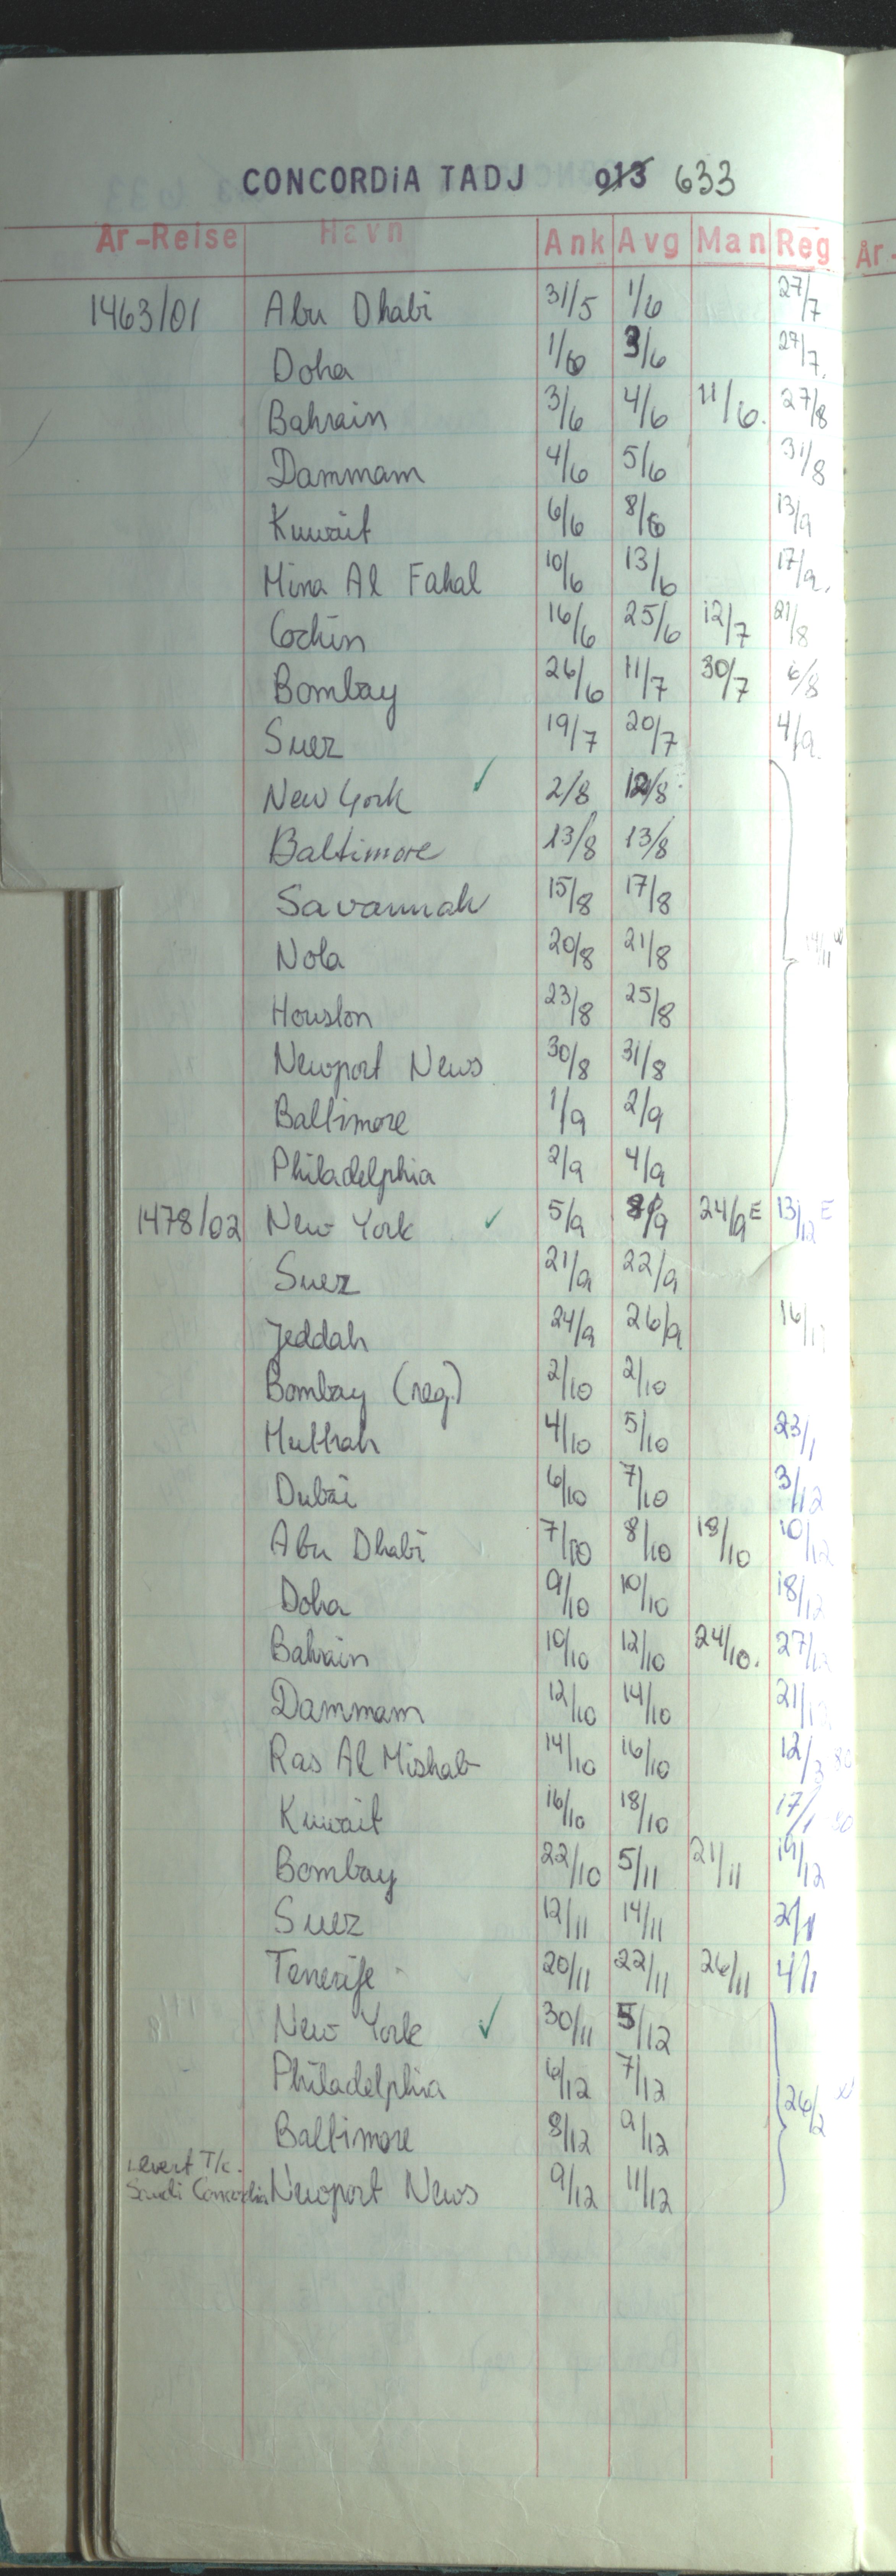 CONCORDIA TADJ 013 633
År-Reise Havn Ank Avg Man Reg År-
1463/01 Abu Dhabi 31/5 1/6 27/7
Doha 1/6 3/6 27/7.
Bahrain 3/6 4/6 11/6. 27/8
Dammam 4/6 5/6 31/8
Kuwait 6/6 8/6 13/9
Mina Al Fahal 10/6 13/6 17/9.
Cochin 16/6 25/6 12/7 21/8
Bombay 26/6 11/7 30/7 6/8
Suez 19/7 20/7 4/9.
New York ✓ 2/8 12/8
Baltimore 13/8 13/8
Savannah 15/8 17/8
Nola 20/8 21/8 14/11
Houston 23/8 25/8
Newport News 30/8 31/8
Baltimore 1/9 2/9
Philadelphia 2/9 4/9
1478/02 New York ✓ 5/9 8/9 24/9 E 13/12 E
Suez 21/9 22/9
Jeddah 24/9 26/9
Bombay (reg.) 2/10 2/10
Muttrah 4/10 5/10 23/1
Dubai 6/10 7/10 3/12
Abu Dhabi 7/10 8/10 18/10 10/12
Doha 9/10 10/10 18/12
Bahrain 10/10 12/10 24/10. 27/12
Dammam 12/10 14/10 21/12
Ras Al Mishab 14/10 16/10 12/3 80
Kuwait 16/10 18/10 17/1 80
Bombay 22/10 5/11 21/11 19/12
Suez 12/11 14/11 2/1
Tenerife 20/11 22/11 26/11 4/1
New York ✓ 30/11 5/12
Philadelphia 6/12 7/12 26/2
Baltimore 8/12 9/12
Levert T/c.
Saudi Concordia Newport News 9/12 11/12